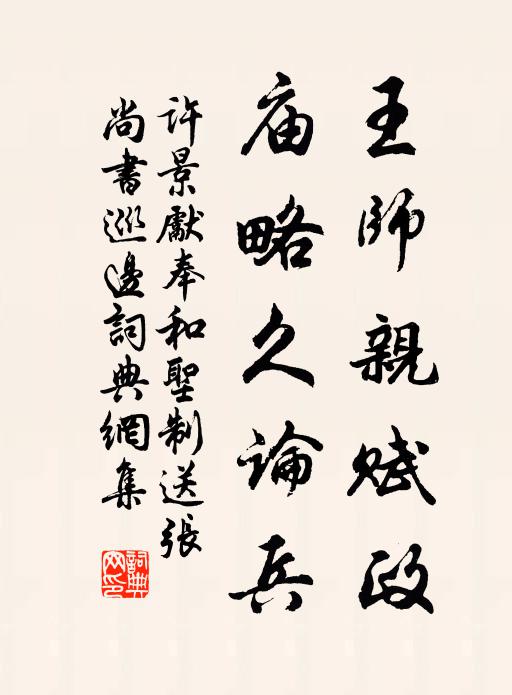 王師親赋政
庙略久論兵
許景獻奉和聖制送張
尚書巡邊詞典網集
詞典
网印